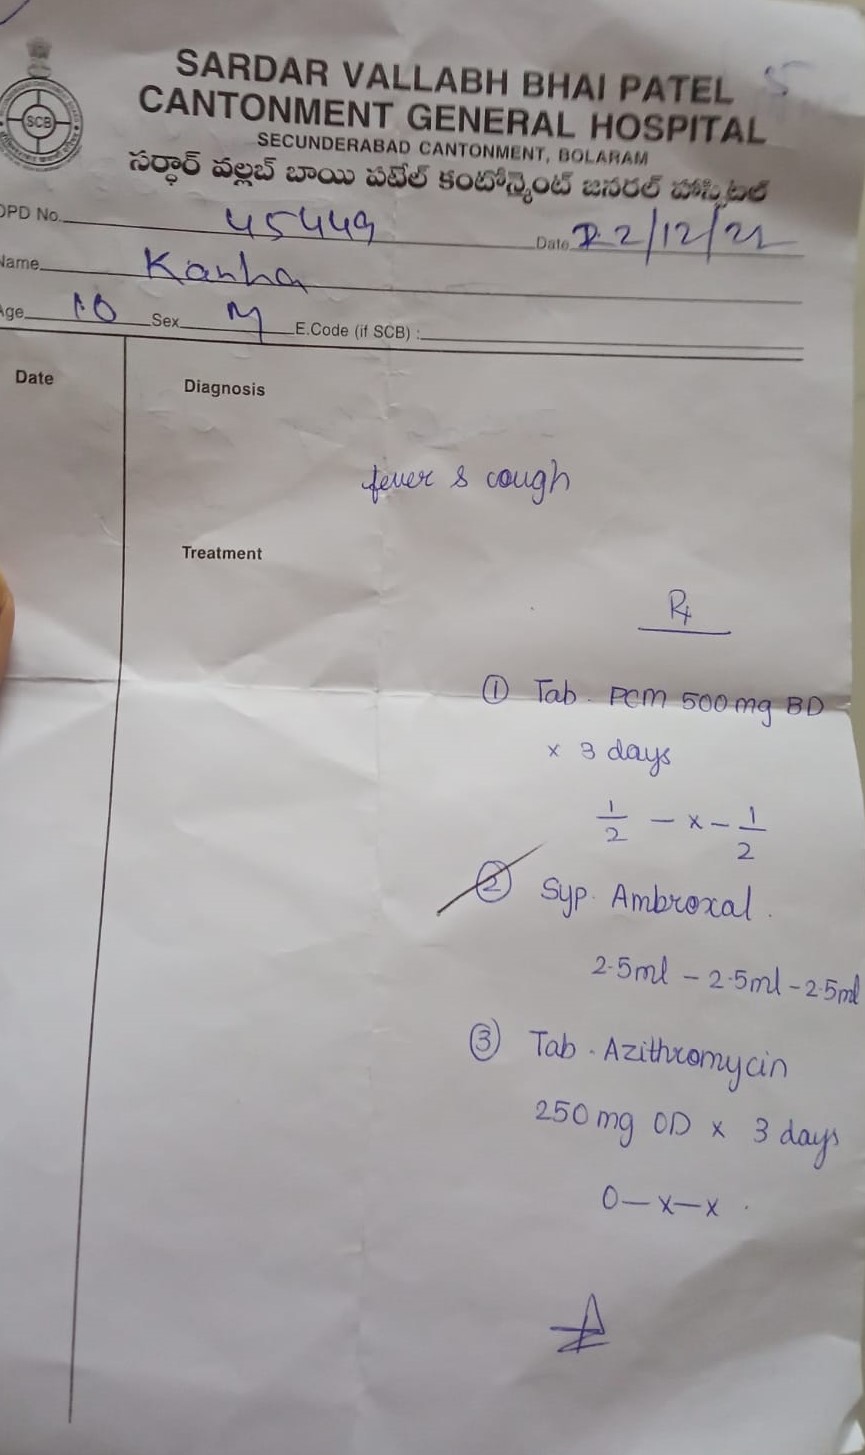 SARDAR VALLABH BHAI PATEL
CANTONMENT GENERAL HOSPITAL
SECUNDERABAD CANTONMENT, BOLARAM
సర్ధార్ వల్లబ్ బాయి పటేల్ కంటోన్మెంట్ జనరల్ హాస్పిటల్
SCB
OPD No. 45449 Date 2/12/21
Name Kanha
Age 10 Sex M E.Code (if SCB) :
Date Diagnosis
fever & cough
Treatment
Rx
① Tab. PCM 500mg BD
x 3 days
1/2 - x - 1/2
② Syp. Ambroxal.
2.5ml - 2.5ml - 2.5ml
③ Tab. Azithromycin
250 mg OD x 3 days
0 - x - x